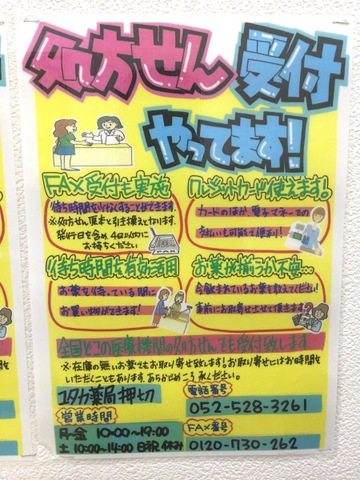 処方せん 受付
やってます!
FAX受付も実施
待ち時間を少なくすることができます。
※処方せん原本と引き換えとなります。
発行日を含め、4日以内に
お持ちください
クレジットカード使えます。
カードのほか、電子マネーの
支払いも可能で便利!
待ち時間を有効活用
お薬を待っている間に
お買い物ができます!
お薬が揃うか不安…
今飲まれているお薬を教えてください!
事前にお取寄せさせて頂きます
全国どこの医療機関の処方せんでも受付致します
※在庫の無いお薬もお取り寄せ致します!お取り寄せにはお時間を
いただくこともあります。あらかじめご了承ください。
ユタカ薬局 押切
電話番号
052-528-3261
営業時間
月-金 10:00~19:00
土 10:00~14:00 日祝 休み
FAX番号
0120-730-262